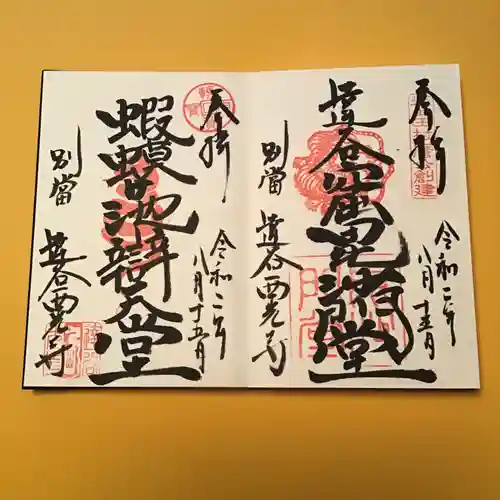 奉拝
創建
達谷窟毘沙門堂
令和二年
八月十五日
別當
達谷西光寺
奉拝
蝦蟇池辯天堂
令和二年
八月十五日
別當
達谷西光寺